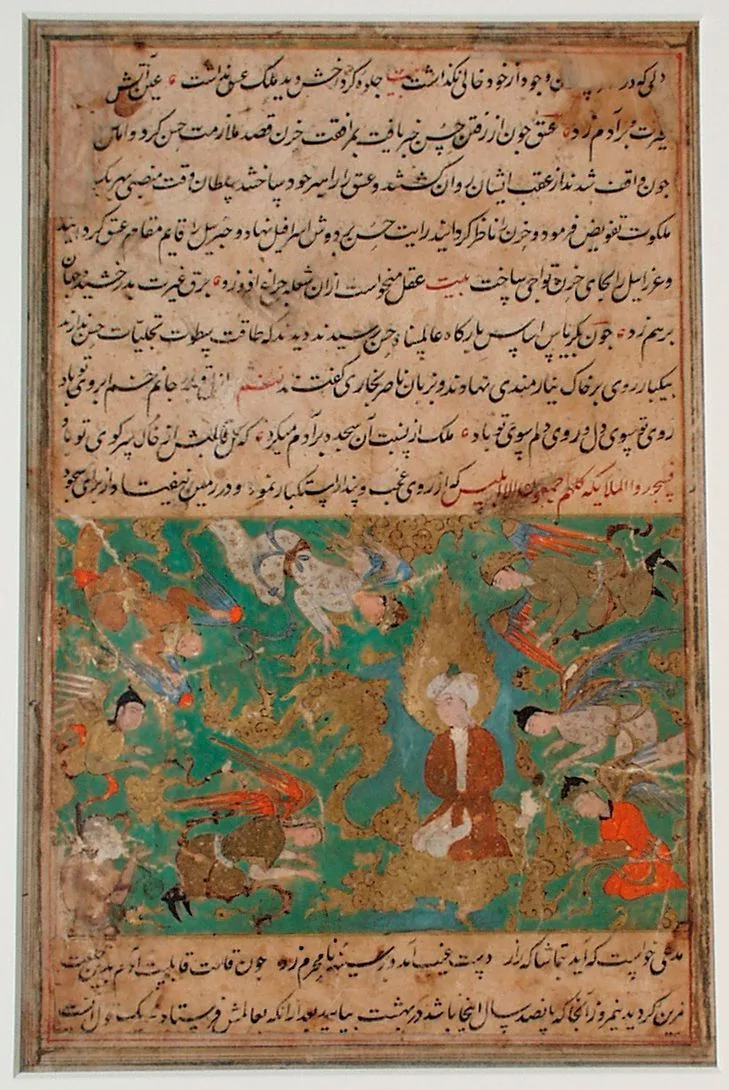 دلی که در وجود از خود خالی نگذاشت بیت جلوه کرد رخش دید ملک عشق نداشت عین آتش
غیرت و بر آدم زد عشق چون از رفتن حسن خبر یافت بمرافقت حزن قصد ملازمت حسن کرد و
چون واقف شدند از عقب ایشان روان گشتند و عشق را امیر خود ساختند سلطان وقت منصبی بهر یک
ملکوت تفویض فرمود و حزن را ناظر گردانید رایت حسن بر دوش اسرافیل نهاد و جبرییل را قایم مقام عشق گردانید
و عزراییل را بجای حزن تواجی ساخت بیت عقل میخواست از ان شعله چراغ افروزد برق غیرت بدرخشید و جهان
برهم زد چون بکریاس اساس بارکاه عالمپناه حسن رسیدند دیدند که طاقت سطوات تجلیات حسن ندارند
بیکبار روی بر خاک نیازمندی نهادند و بزبان ناصر بخاری گفتند جانم خم ابروی تو باد
روی تو سوی دل و روی دلم سوی تو باد ملک از پشت آن سجده بر آدم میکرد که کل قالبش از خاک سر کوی تو بود
فسجد الملایکه کلهم اجمعون الا ابلیس که از روی عجب و پندار استکبار نمود و در زمین نیفتاد از برای سجود
مدعی خواست که آید بتماشا که راز دست غیب آمد و بر سینه نامحرم زد چون قامت قابلیت آدم بدین خلعت
مزین کردید نیمروز آنجا که پانصد سال اینجا باشد در بهشت بیاسید بعد از انکه بعالمش فرستاد یک قول